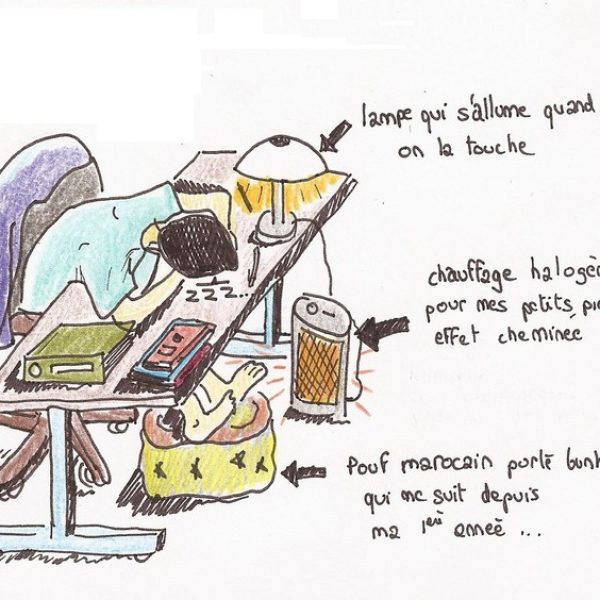 lampe qui s'allume quand
on la touche
zzz...
chauffage halogè
pour mes petits pi
effet cheminée
Pouf marocain porté
qui me suit depuis
ma 1ère année ...